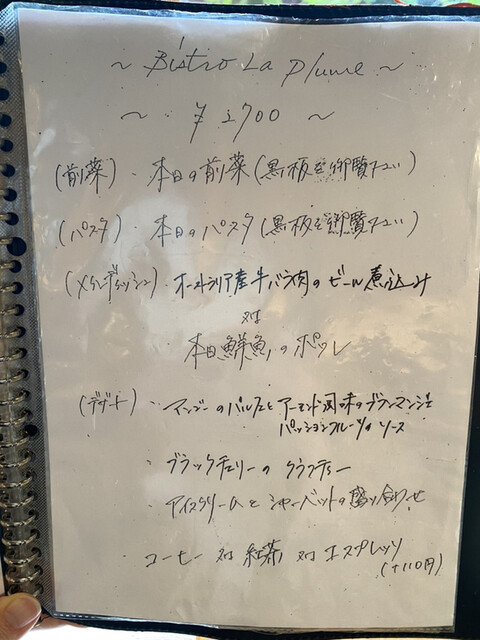 ~ Bistro La Plume ~
~ ¥2700 ~
(前菜)・本日の前菜(黒板を御覧下さい)
(パスタ)・本日のパスタ(黒板を御覧下さい)
(メインディッシュ)・オーストラリア産牛バラ肉のビール煮込み
対
本日鮮魚のポワレ
(デザート)・マンゴーのパルフェとアーモンド風味のブランマンジェ
パッションフルーツのソース
・ブラックチェリーのクラフティー
・アイスクリームとシャーベットの盛り合わせ
コーヒー 対 紅茶 対 エスプレッソ
(+110円)